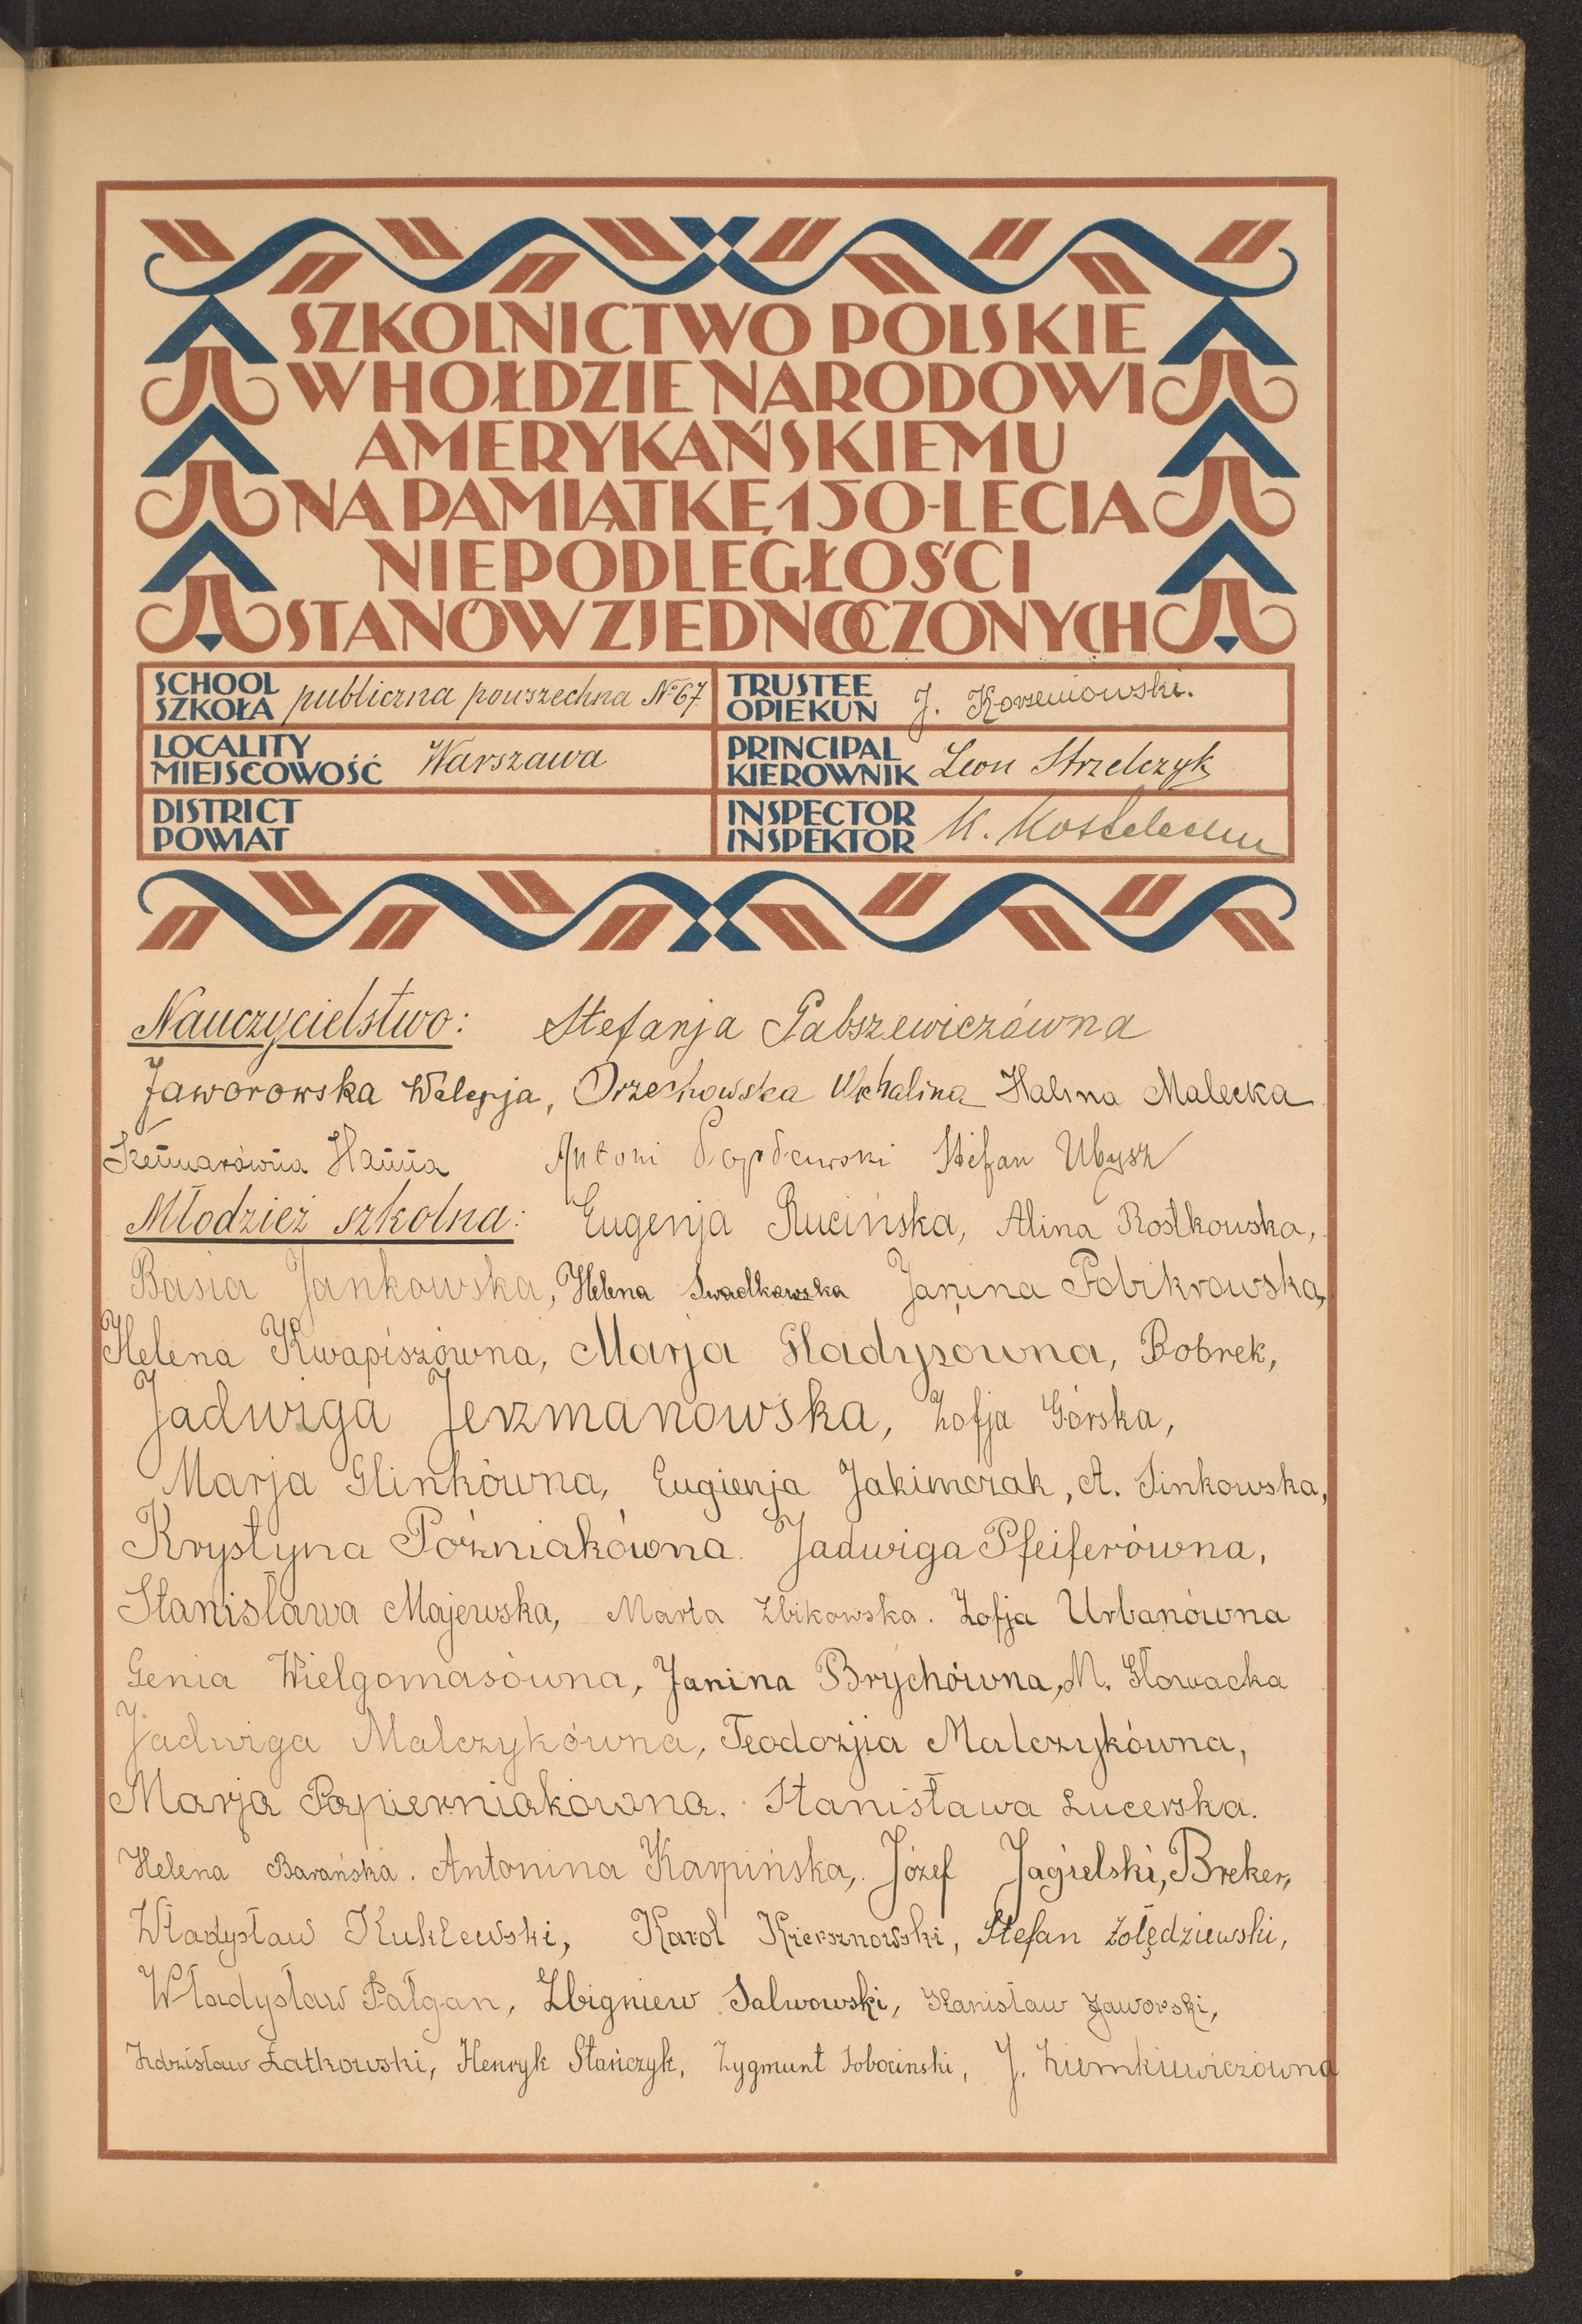 SZKOLNICTWO POLSKIE
W HOŁDZIE NARODOWI
AMERYKAŃSKIEMU
NA PAMIĄTKĘ 150-LECIA
NIEPODLEGŁOŚCI
STANÓW ZJEDNOCZONYCH
SCHOOL SZKOŁA publiczna powszechna № 67
TRUSTEE OPIEKUN J. Korzeniowski.
LOCALITY MIEJSCOWOŚĆ Warszawa
PRINCIPAL KIEROWNIK Leon Strzelczyk
DISTRICT POWIAT
INSPECTOR INSPEKTOR K.
Nauczycielstwo: Stefanja Gabszewiczówna
Jaworowska Walerja, Orzechowska Michalina Halina Malecka
Hanna Antoni Stefan Ubysz
Młodzież szkolna: Eugenja Rucińska, Alina Rostkowska,
Basia Jankowska, Helena Swadkowska Janina Pobikrowska,
Helena Kwapiszówna, Marja Gładysowna, Bobrek,
Jadwiga Jerzmanowska, Zofja Górska,
Marja Glinkówna, Eugienja Jakimczak, A. Sinkowska,
Krystyna Poźniakówna. Jadwiga Pfeiferówna,
Stanisława Majewska, Marta Zbikowska. Zofja Urbanówna
Genia Wielgomasówna, Janina Brychówna, M. Głowacka
Jadwiga Malczykówna, Teodozjia Malczykówna,
Marja Papierniakówna. Stanisława Lucerska.
Helena Barańska. Antonina Karpińska, Józef Jagielski, Breker,
Władysław Kuklewski, Karol Kiersznowski, Stefan Żołędziewski,
Władysław Pałgan, Zbigniew Salwowski, Stanisław Jaworski,
Zdzisław Łatkowski, Henryk Stańczyk, Zygmunt Sobocinski, J. Ziemkiewiczówna